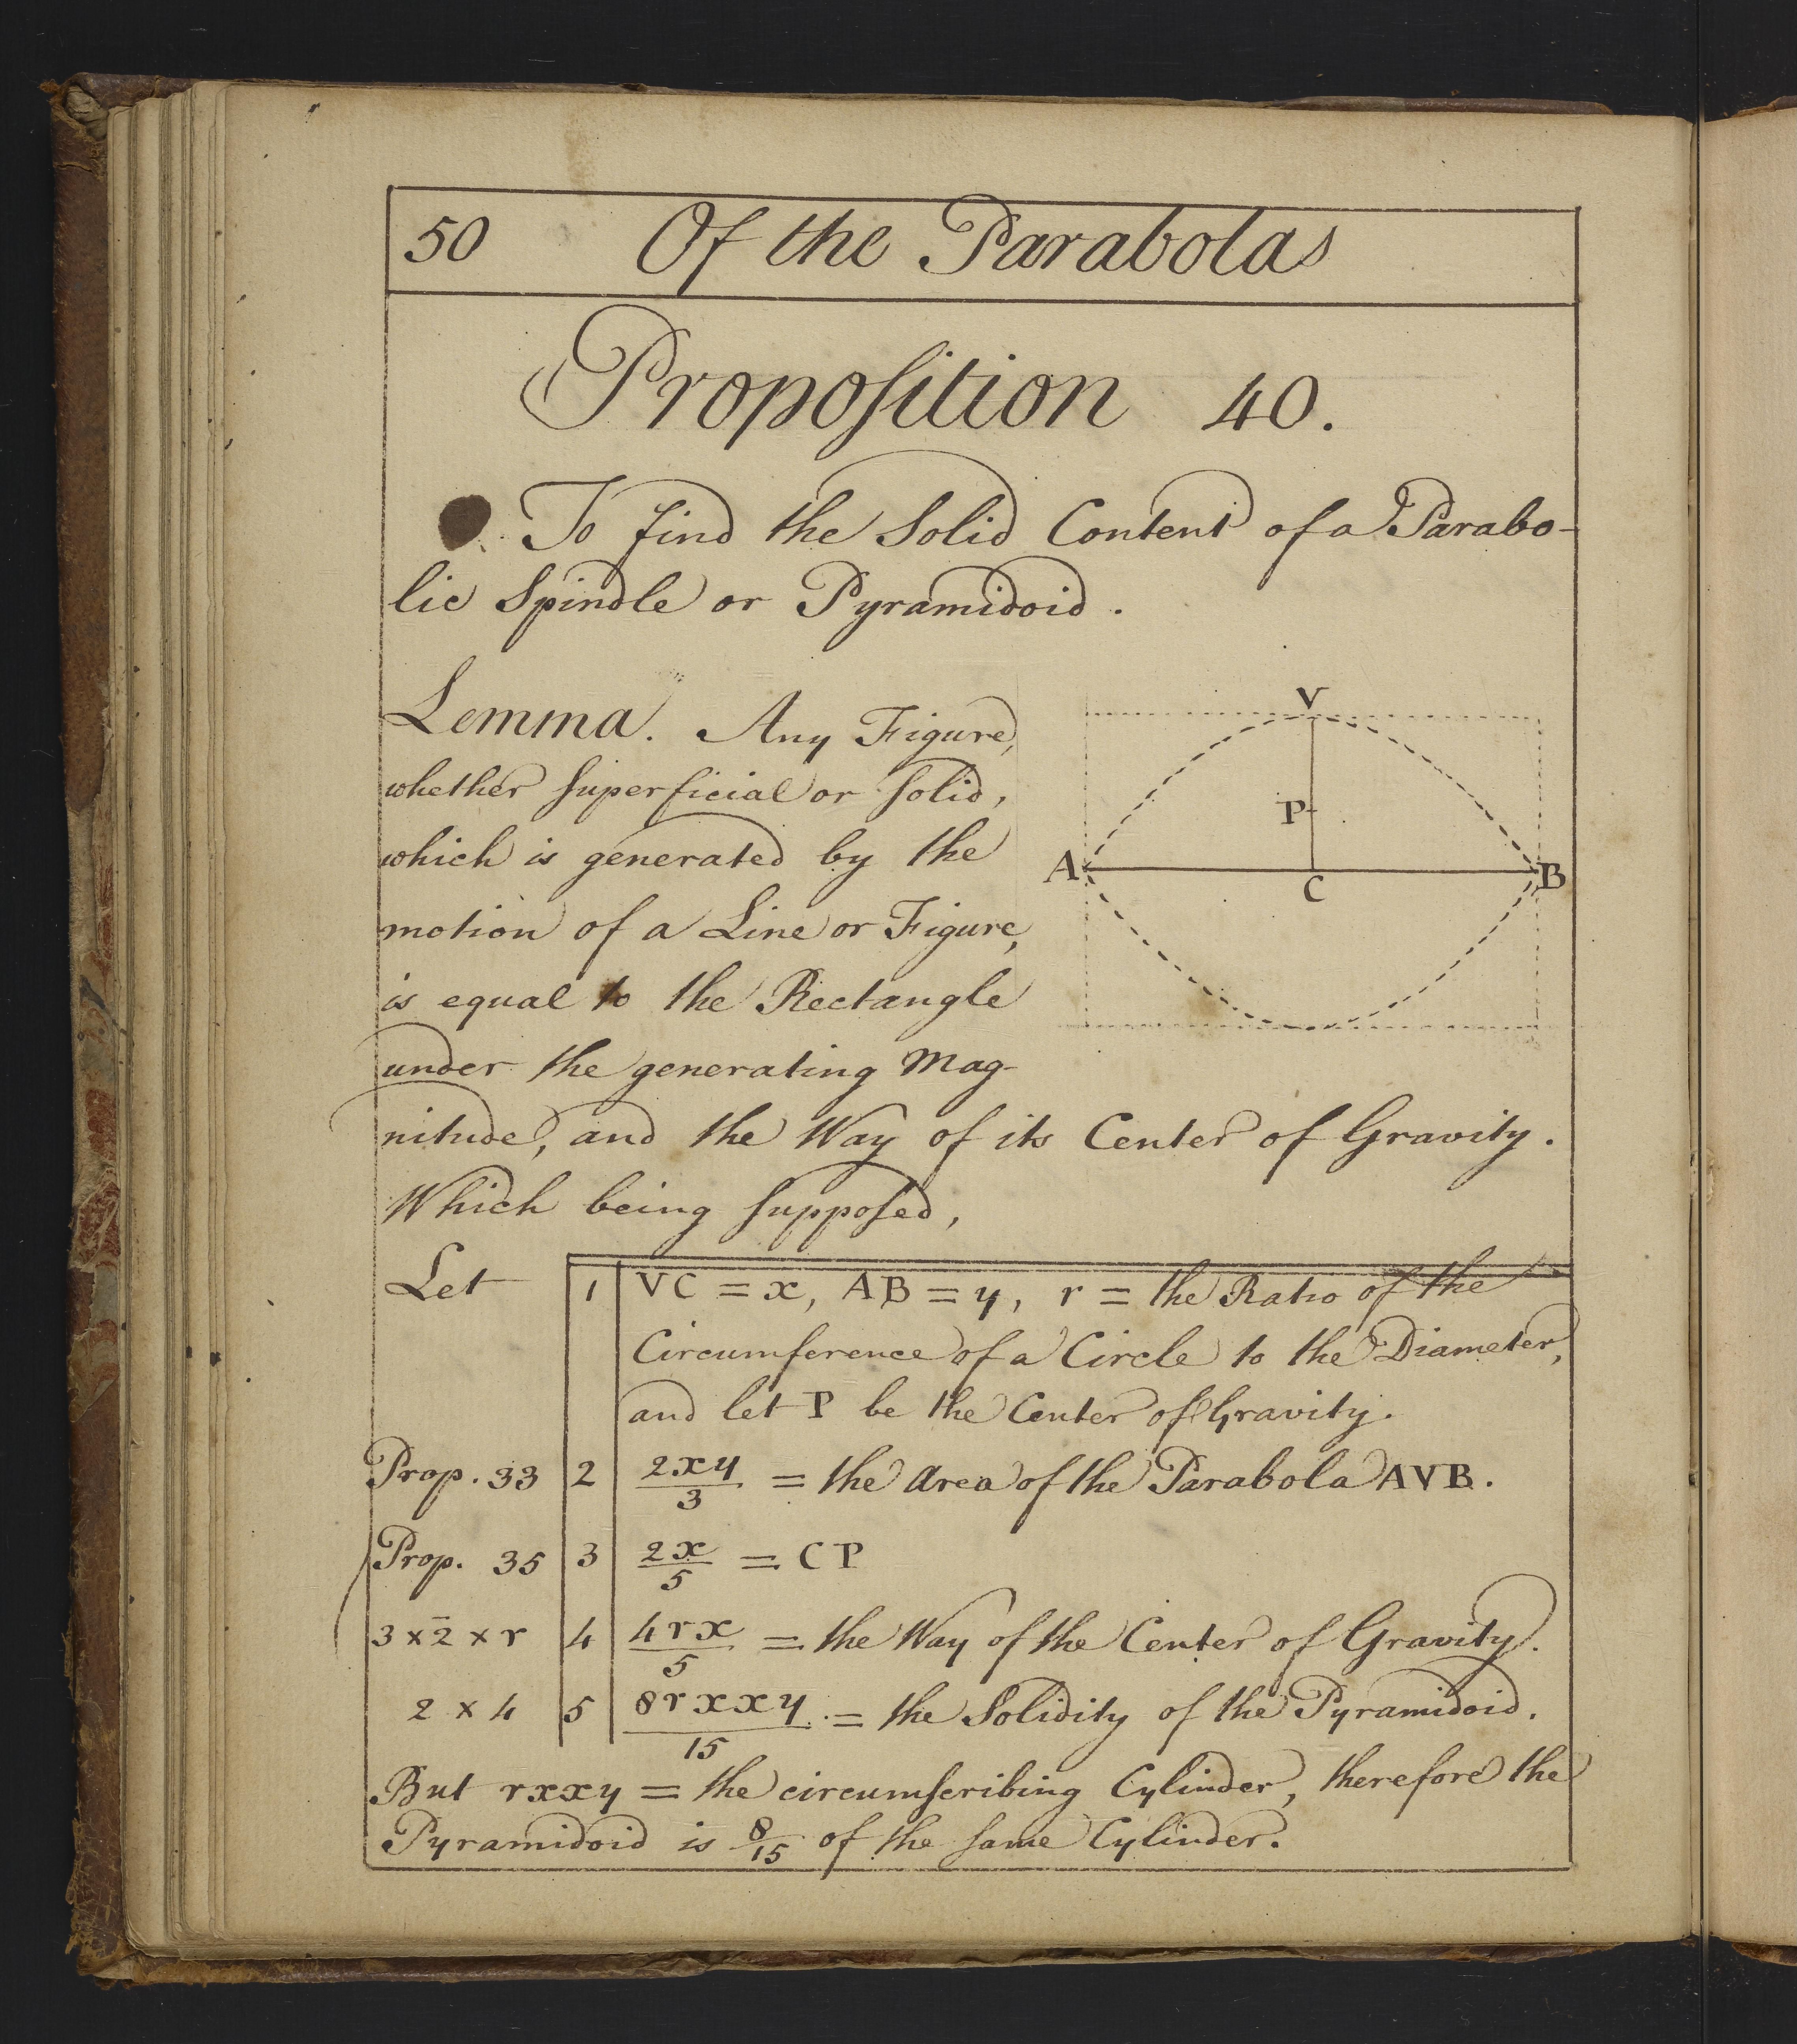 50 Of the Parabolas
Propoſition 40.
To find the Solid Content of a Parabo-
lic Spindle or Pyramidoid.
Lemma. Any Figure,
whether ſuperficial or ſolid,
which is generated by the
motion of a Line or Figure,
is equal to the Rectangle
under the generating Mag-
nitude, and the Way of its Center of Gravity.
Which being ſuppoſed,
V
P
A B
C
Let 1 VC = x, AB = y, r = the Ratio of the
Circumference of a Circle to the Diameter,
and let P be the Center of Gravity.
Prop. 33 2 2xy/3 = the area of the Parabola AVB.
Prop. 35 3 2x/5 = CP
3 × 2̅ × r 4 4rx/5 = the Way of the Center of Gravity.
2 × 4 5 8rxxy/15 = the Solidity of the Pyramidoid.
But rxxy = the circumſcribing Cylinder, therefore the
Pyramidoid is 8/15 of the ſame Cylinder.